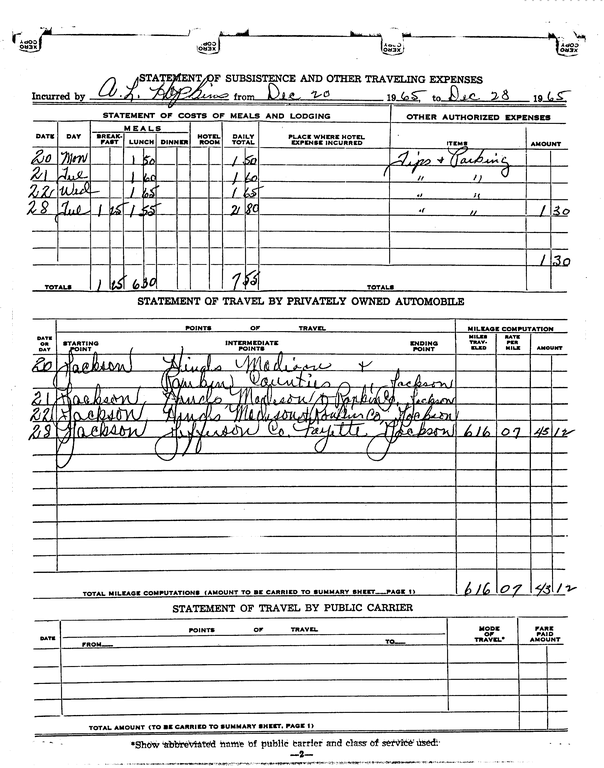 XERO COPY XERO COPY XERO COPY XERO COPY
STATEMENT OF SUBSISTENCE AND OTHER TRAVELING EXPENSES
Incurred by A. L. Hopkins from Dec 20 1965 to Dec 28 1965
STATEMENT OF COSTS OF MEALS AND LODGING OTHER AUTHORIZED EXPENSES
DATE DAY MEALS BREAK-FAST LUNCH DINNER HOTEL ROOM DAILY TOTAL PLACE WHERE HOTEL EXPENSE INCURRED ITEMS AMOUNT
20 Mon 1 50 1 50 Tips & Parking
21 Tue 1 60 1 60 " "
22 Wed 1 65 1 65 " "
28 Tue 1 25 1 55 2 80 " " 1 30
1 30
TOTALS 1 25 6 30 7 55 TOTALS
STATEMENT OF TRAVEL BY PRIVATELY OWNED AUTOMOBILE
DATE OR DAY POINTS OF TRAVEL MILEAGE COMPUTATION
STARTING POINT INTERMEDIATE POINTS ENDING POINT MILES TRAV-ELED RATE PER MILE AMOUNT
20 Jackson Hinds Madison &
Rankin Counties Jackson
21 Jackson Hinds Madison & Rankin Co. Jackson
22 Jackson Hinds Madison & Rankin Co Jackson
28 Jackson Jefferson Co. Fayette Jackson 616 07 43 12
TOTAL MILEAGE COMPUTATIONS (AMOUNT TO BE CARRIED TO SUMMARY SHEET PAGE 1) 616 07 43 12
STATEMENT OF TRAVEL BY PUBLIC CARRIER
DATE POINTS OF TRAVEL MODE OF TRAVEL* FARE PAID AMOUNT
FROM TO
TOTAL AMOUNT (TO BE CARRIED TO SUMMARY SHEET, PAGE 1)
*Show abbreviated name of public carrier and class of service used.
—2—